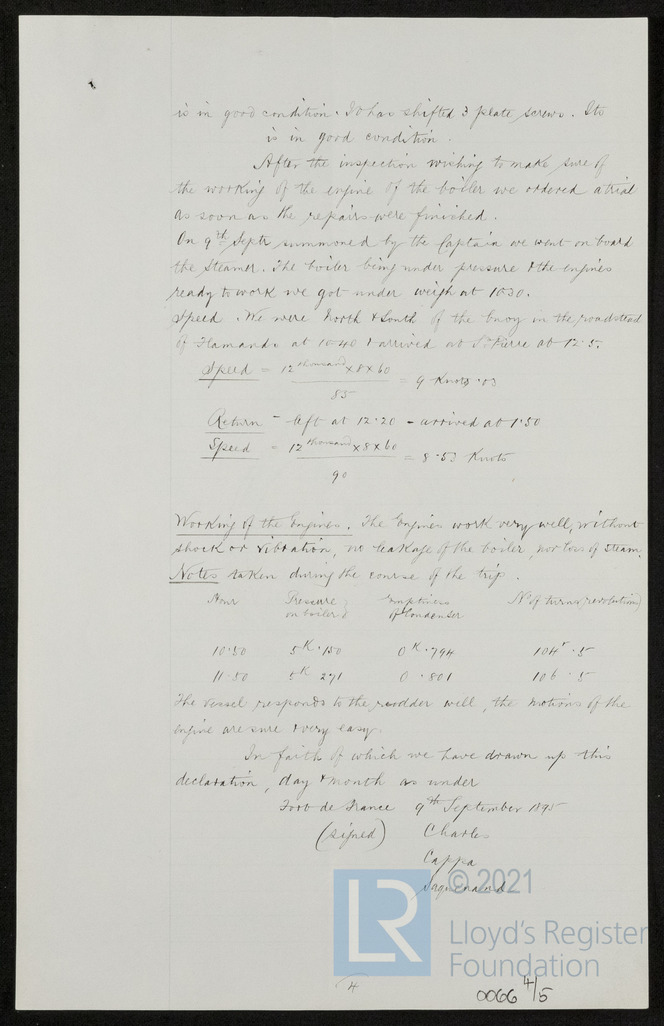 is in good condition. It has shifted 3 plate screws. Its
is in good condition.
After the inspection wishing to make sure of
the working of the engine of the boiler we ordered a trial
as soon as the repairs were finished.
On 9th Septr summoned by the Captain we went on board
the Steamer. The boiler being under pressure & the engines
ready to work we got under weigh at 10.30.
Speed. We were North & South of the buoy in the roadstead
of Flamands at 10.40 & arrived at St Pierre at 12.5.
Speed = 12 thousand x 8 x 60 = 9 Knots .03
85
Return - left at 12.20 - arrived at 1.50
Speed = 12 thousand x 8 x 60 = 8.53 Knots
90
Working of the Engines. The Engines work very well, without
shock or vibration, no leakage of the boiler, nor loss of steam.
Notes taken during the course of the trip.
Hour Pressure Emptiness No of turns (revolutions)
on boiler of Condenser
10.50 5K.150 0K.794 104r.5
11.50 5K 271 0.801 106.5
The vessel responds to the rudder well, the motions of the
engine are sure & very easy.
In faith of which we have drawn up this
declaration, day & month as under
Fort de France 9th September 1895
(signed) Charles
Cappa
© 2021
LR
Lloyd's Register
Foundation
4
0066 4/5